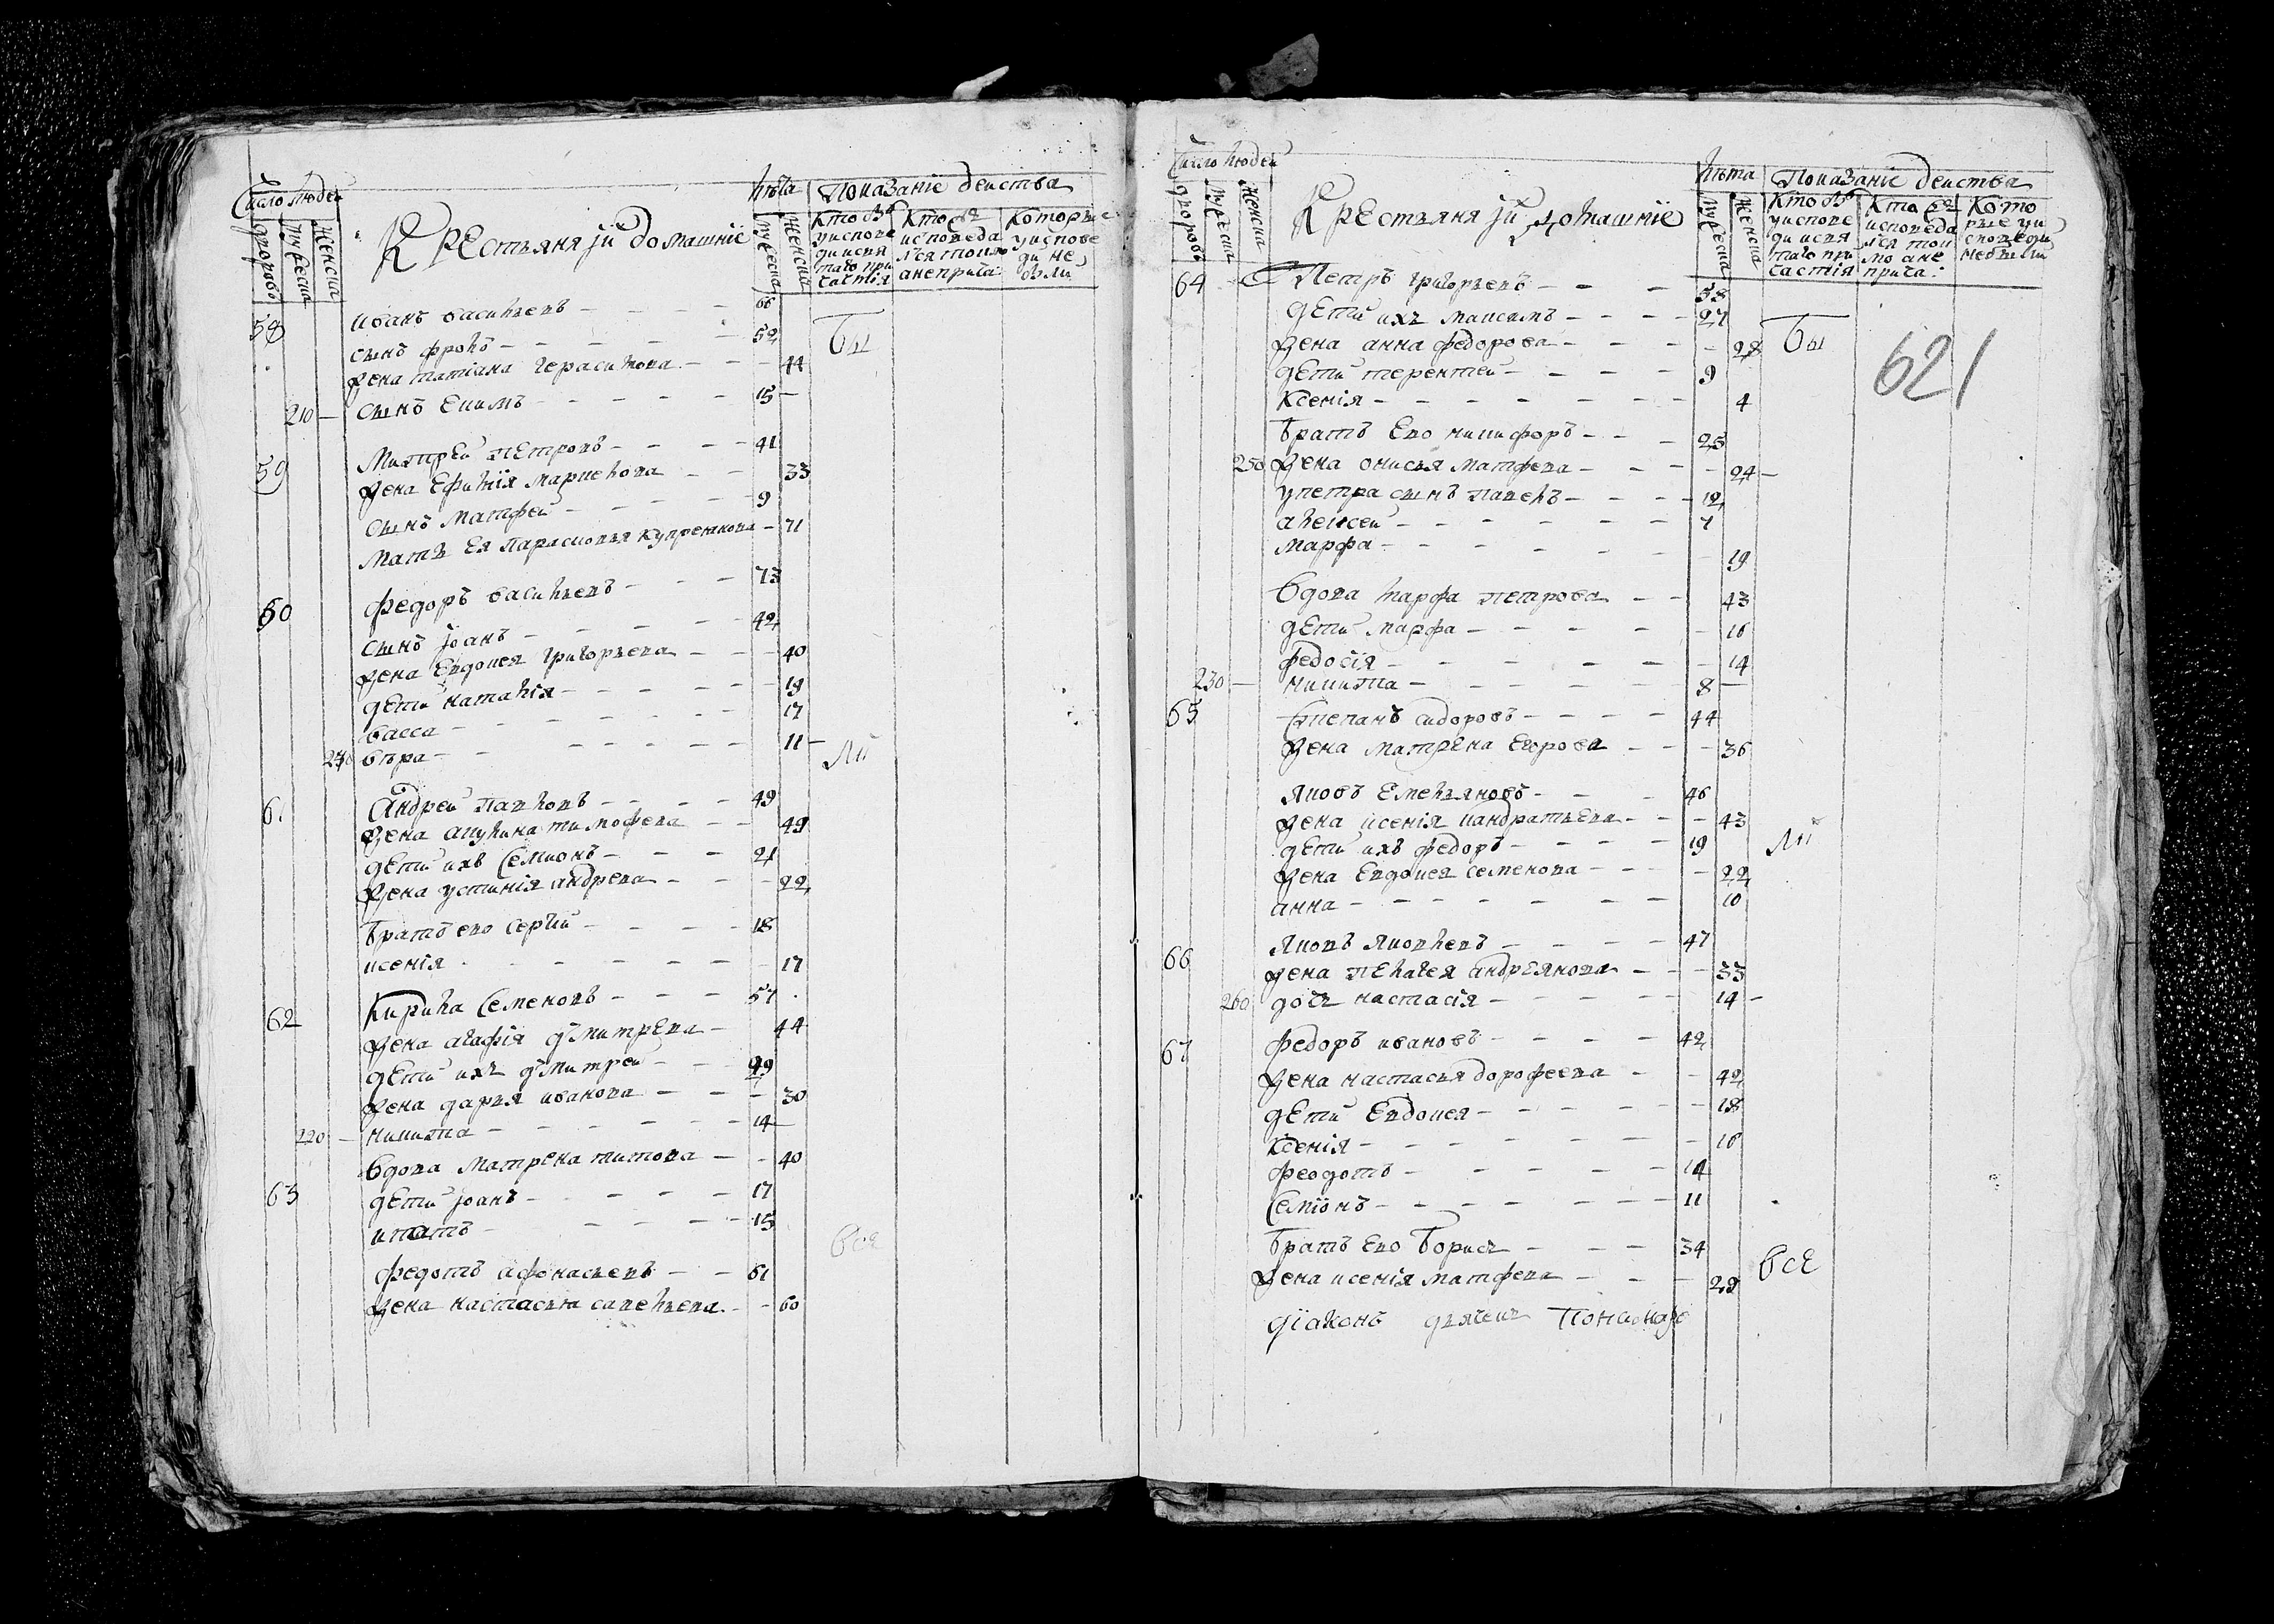 Число людей
дворовъ
мужеска
женска
Крестьяня їи домашнїе
лѣта
мужеска
женска
Показанїе деиства
Кто былъ
у испове
ди и свя
таго при
частїя
Кто
исповеда
лся толко
а не прича
Которые
у испове
ди не
были
58 иванъ васильевъ - - - 66
сынъ фролъ - - - 52
жена татїана герасимова - - 44
210 - сынъ екимъ - - - 15 -
59 Митрей петровъ - - - 41
жена ефимїя маркелова - - 33
сынъ матфей - - - 9
мать ея парасковья - 71
60 федоръ васильевъ - - - 73
сынъ їоанъ - - - 42
жена евдокея григорьева - - - 40
дети наталїя - - - 19
васса - - - 17
вѣра - - - 11 -
61 Андрей павловъ - - - 49
жена акулина тимофева - - 49
дети ихъ Семионъ - - - 21
жена устинїя андрева - - - 22
братъ ево сергий - - - 18
ксенїя - - - 17
62 Кирила Семеновъ - - - 57
жена агафїя дмитрева - 44
дети ихъ дмитрей - - 29
жена дарья иванова - - - 30
220 - никита - - - 14 -
вдова матрена титова - - 40
63 дети їоанъ - - - 17
- - - 15
федотъ афонасьевъ - - 61
жена настасья савельева - - 60
Бы
ли
все
Число людей
дворовъ
мужеска
женска
Крестьяня їи домашнїе
лѣта
мужеска
женска
Показанїе деиства
Кто былъ
у испове
ди и свя
таго при
частїя
Кто
исповеда
лся тол
ко а не
прича:
Кото
рые у и
споведи
небыли
621
64 - Петръ григорьевъ - - - 58
дети ихъ максимъ - - - 27
жена анна федорова - - - 28
дети терентей - - - 9
Ксенїя - - - 4
братъ ево никифоръ - - - 25
жена онисья матфева - - - 24 -
у петра сынъ павелъ - - - 12
алексей - - - 7
марфа - - - 19
вдова марфа петрова - - 43
дети марфа - - - 16
федосїя - - - 14
230 - никита - - - 8 -
65 Степанъ сидоровъ - - - 44
жена матрена егорова - - - 36
яковъ емельяновъ - - - 46
жена ксенїя кандратьева - - - 43
дети ихъ федоръ - - - 19
жена евдокея семенова - - - 22
анна - - - 10
66 яковъ яковлевъ - - - 47
жена пелагея андреянова - - - 33
260 дочь настасїя - - - 14 -
67 федоръ ивановъ - - - 42
жена настасья дорофеева - - 42
дети евдокея - - - 18
Ксенїя - - - 16
феодотъ - - - 14
Семїонъ - - - 11
братъ ево борисъ - - - 34
жена ксенїя матфева - - - 29
дїаконъ дьячекъ пономарь
Бы
ли
все